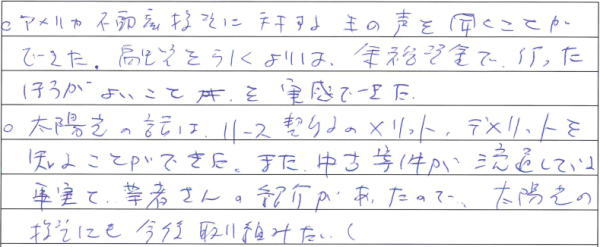 ○アメリカ不動産投資に対する生の声を聞くことが
できた。融資をひくよりは、余裕資金で、行った
ほうがよいことが、を実感できた。
○太陽光の話は、リース契約のメリット、デメリットを
知ることができた。また、中古案件が流通している
事実で、業者さんの紹介があったので、太陽光の
投資にも今後取り組みたい。